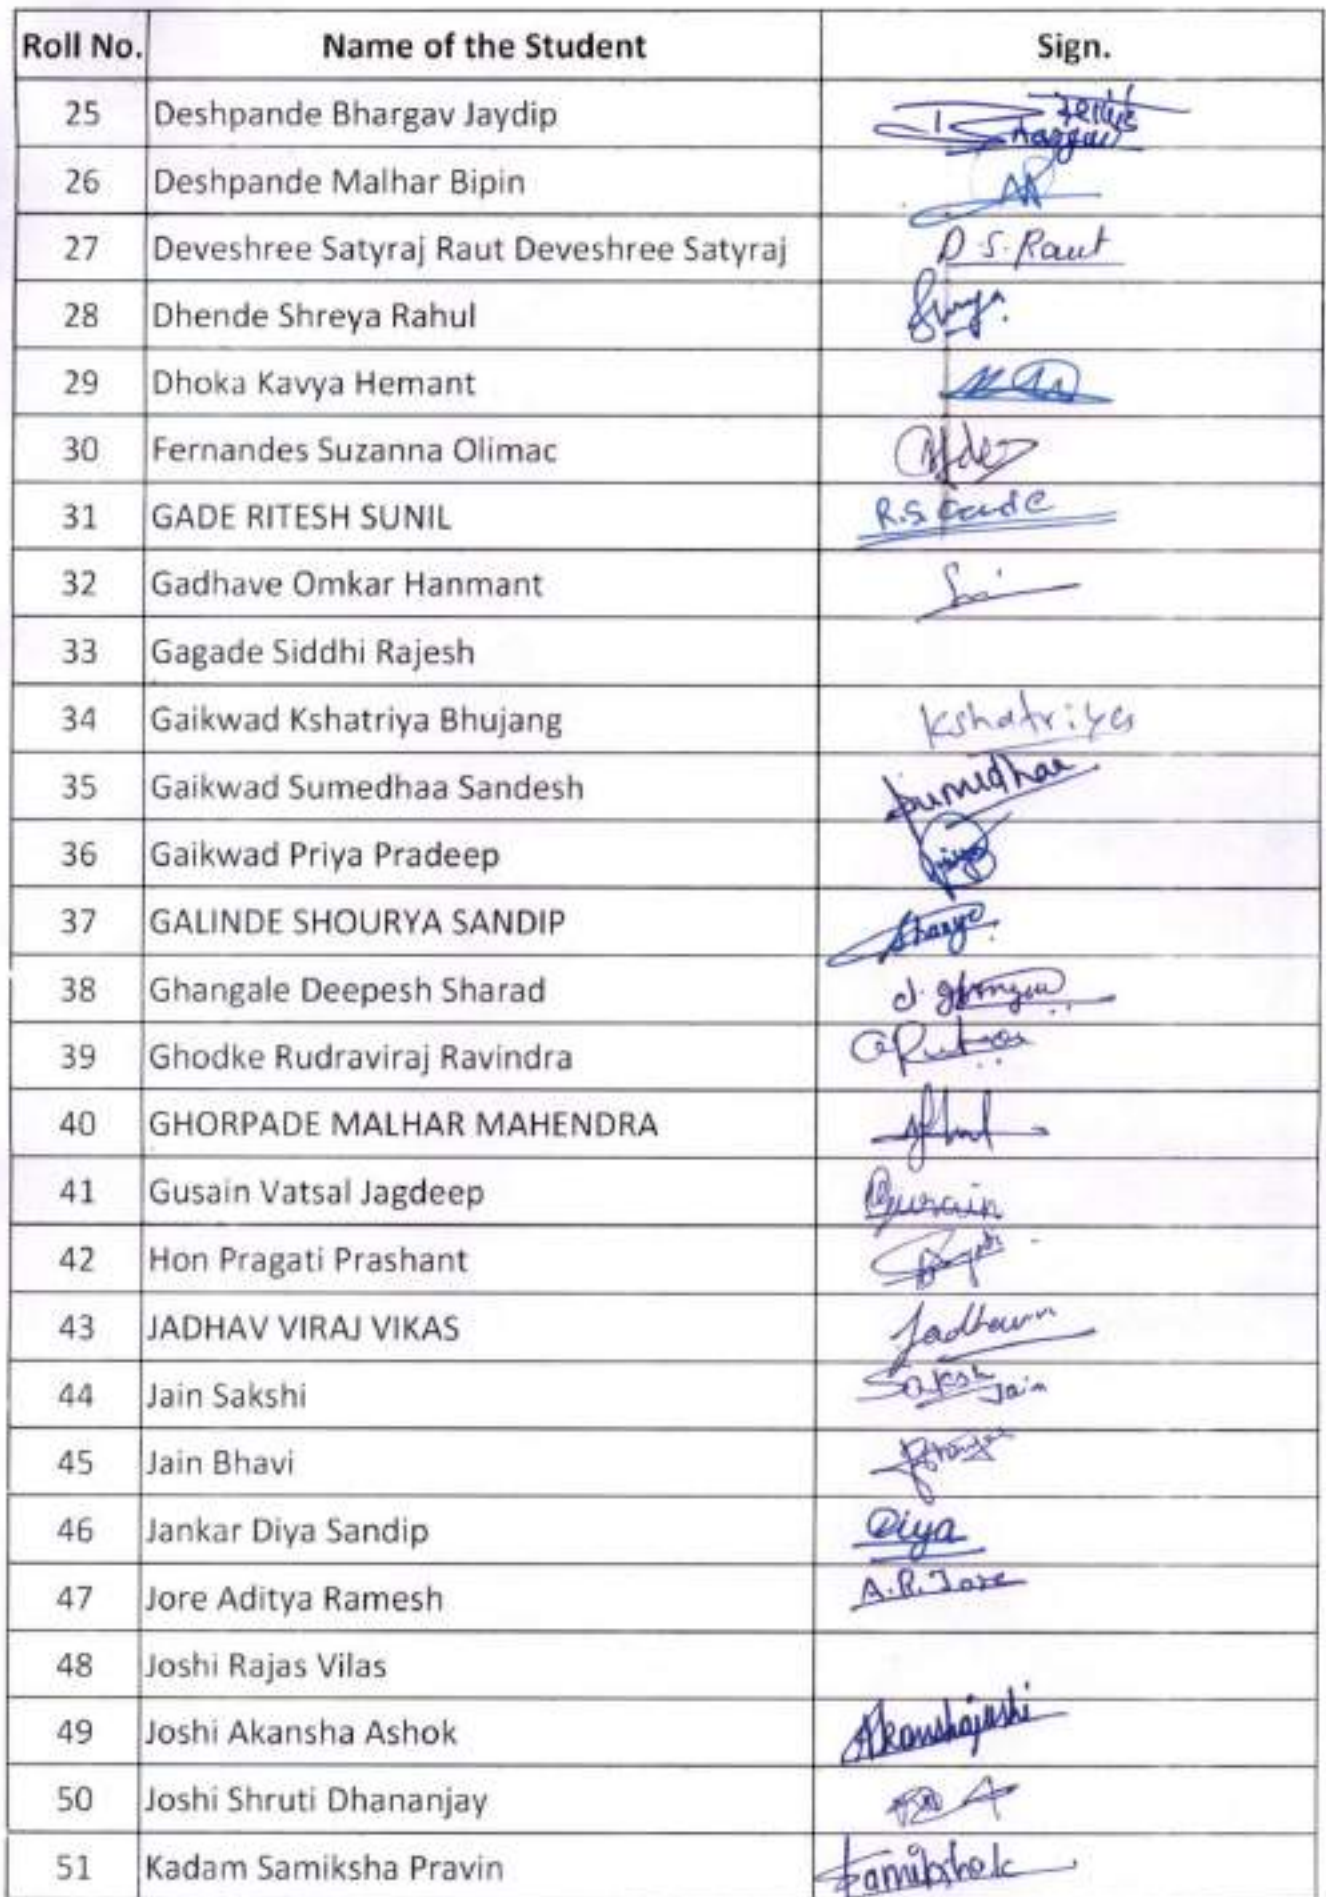 Roll No. Name of the Student Sign.
25 Deshpande Bhargav Jaydip
26 Deshpande Malhar Bipin
27 Deveshree Satyraj Raut Deveshree Satyraj D.S.Raut
28 Dhende Shreya Rahul
29 Dhoka Kavya Hemant
30 Fernandes Suzanna Olimac
31 GADE RITESH SUNIL R.S. Gade
32 Gadhave Omkar Hanmant
33 Gagade Siddhi Rajesh
34 Gaikwad Kshatriya Bhujang Kshatriya
35 Gaikwad Sumedhaa Sandesh Sumedhaa
36 Gaikwad Priya Pradeep Priya
37 GALINDE SHOURYA SANDIP
38 Ghangale Deepesh Sharad
39 Ghodke Rudraviraj Ravindra
40 GHORPADE MALHAR MAHENDRA
41 Gusain Vatsal Jagdeep Gusain
42 Hon Pragati Prashant
43 JADHAV VIRAJ VIKAS
44 Jain Sakshi Sakshi Jain
45 Jain Bhavi
46 Jankar Diya Sandip Diya
47 Jore Aditya Ramesh A.R.Jore
48 Joshi Rajas Vilas
49 Joshi Akansha Ashok Akanshajoshi
50 Joshi Shruti Dhananjay
51 Kadam Samiksha Pravin